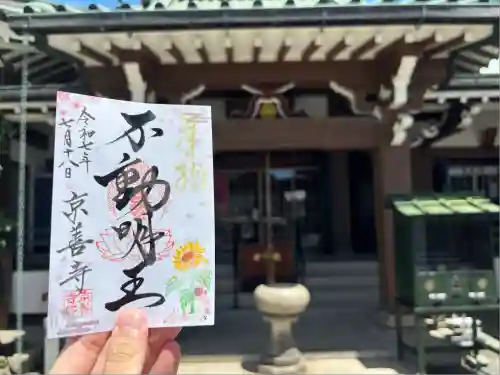 奉拝
不動明王
令和七年
七月十八日
京善寺